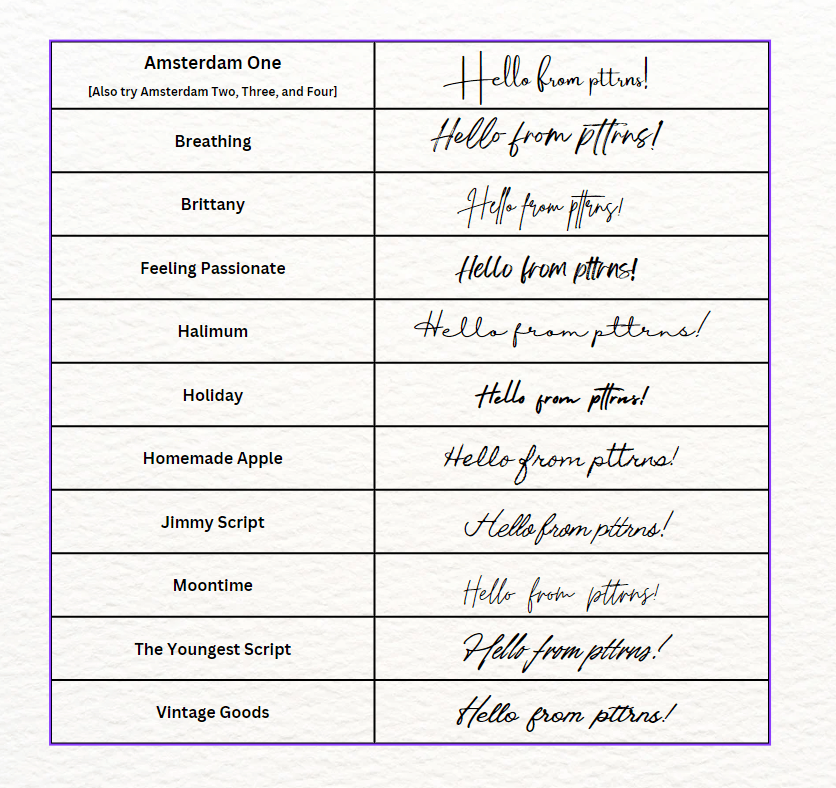 Amsterdam One
[Also try Amsterdam Two, Three, and Four]
Hello from pttrns!
Breathing
Hello from pttrns!
Brittany
Hello from pttrns!
Feeling Passionate
Hello from pttrns!
Halimum
Hello from pttrns!
Holiday
Hello from pttrns!
Homemade Apple
Hello from pttrns!
Jimmy Script
Hello from pttrns!
Moontime
Hello from pttrns!
The Youngest Script
Hello from pttrns!
Vintage Goods
Hello from pttrns!